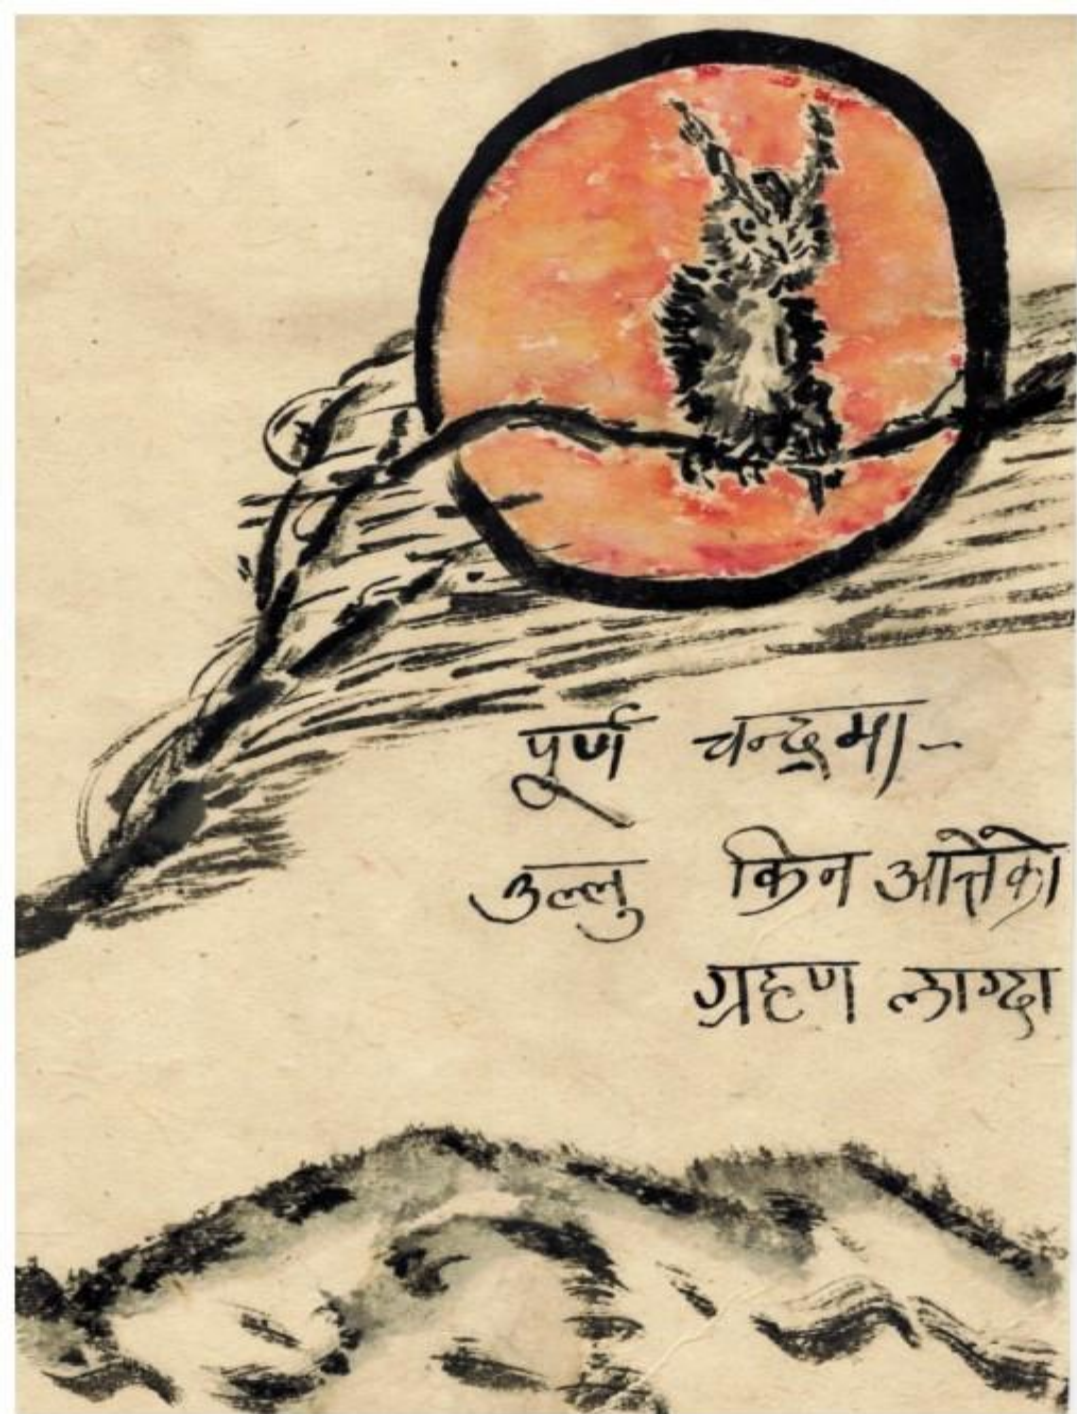 पूर्ण चन्द्रमा-
उल्लु किन आत्तेको
ग्रहण लाग्दा